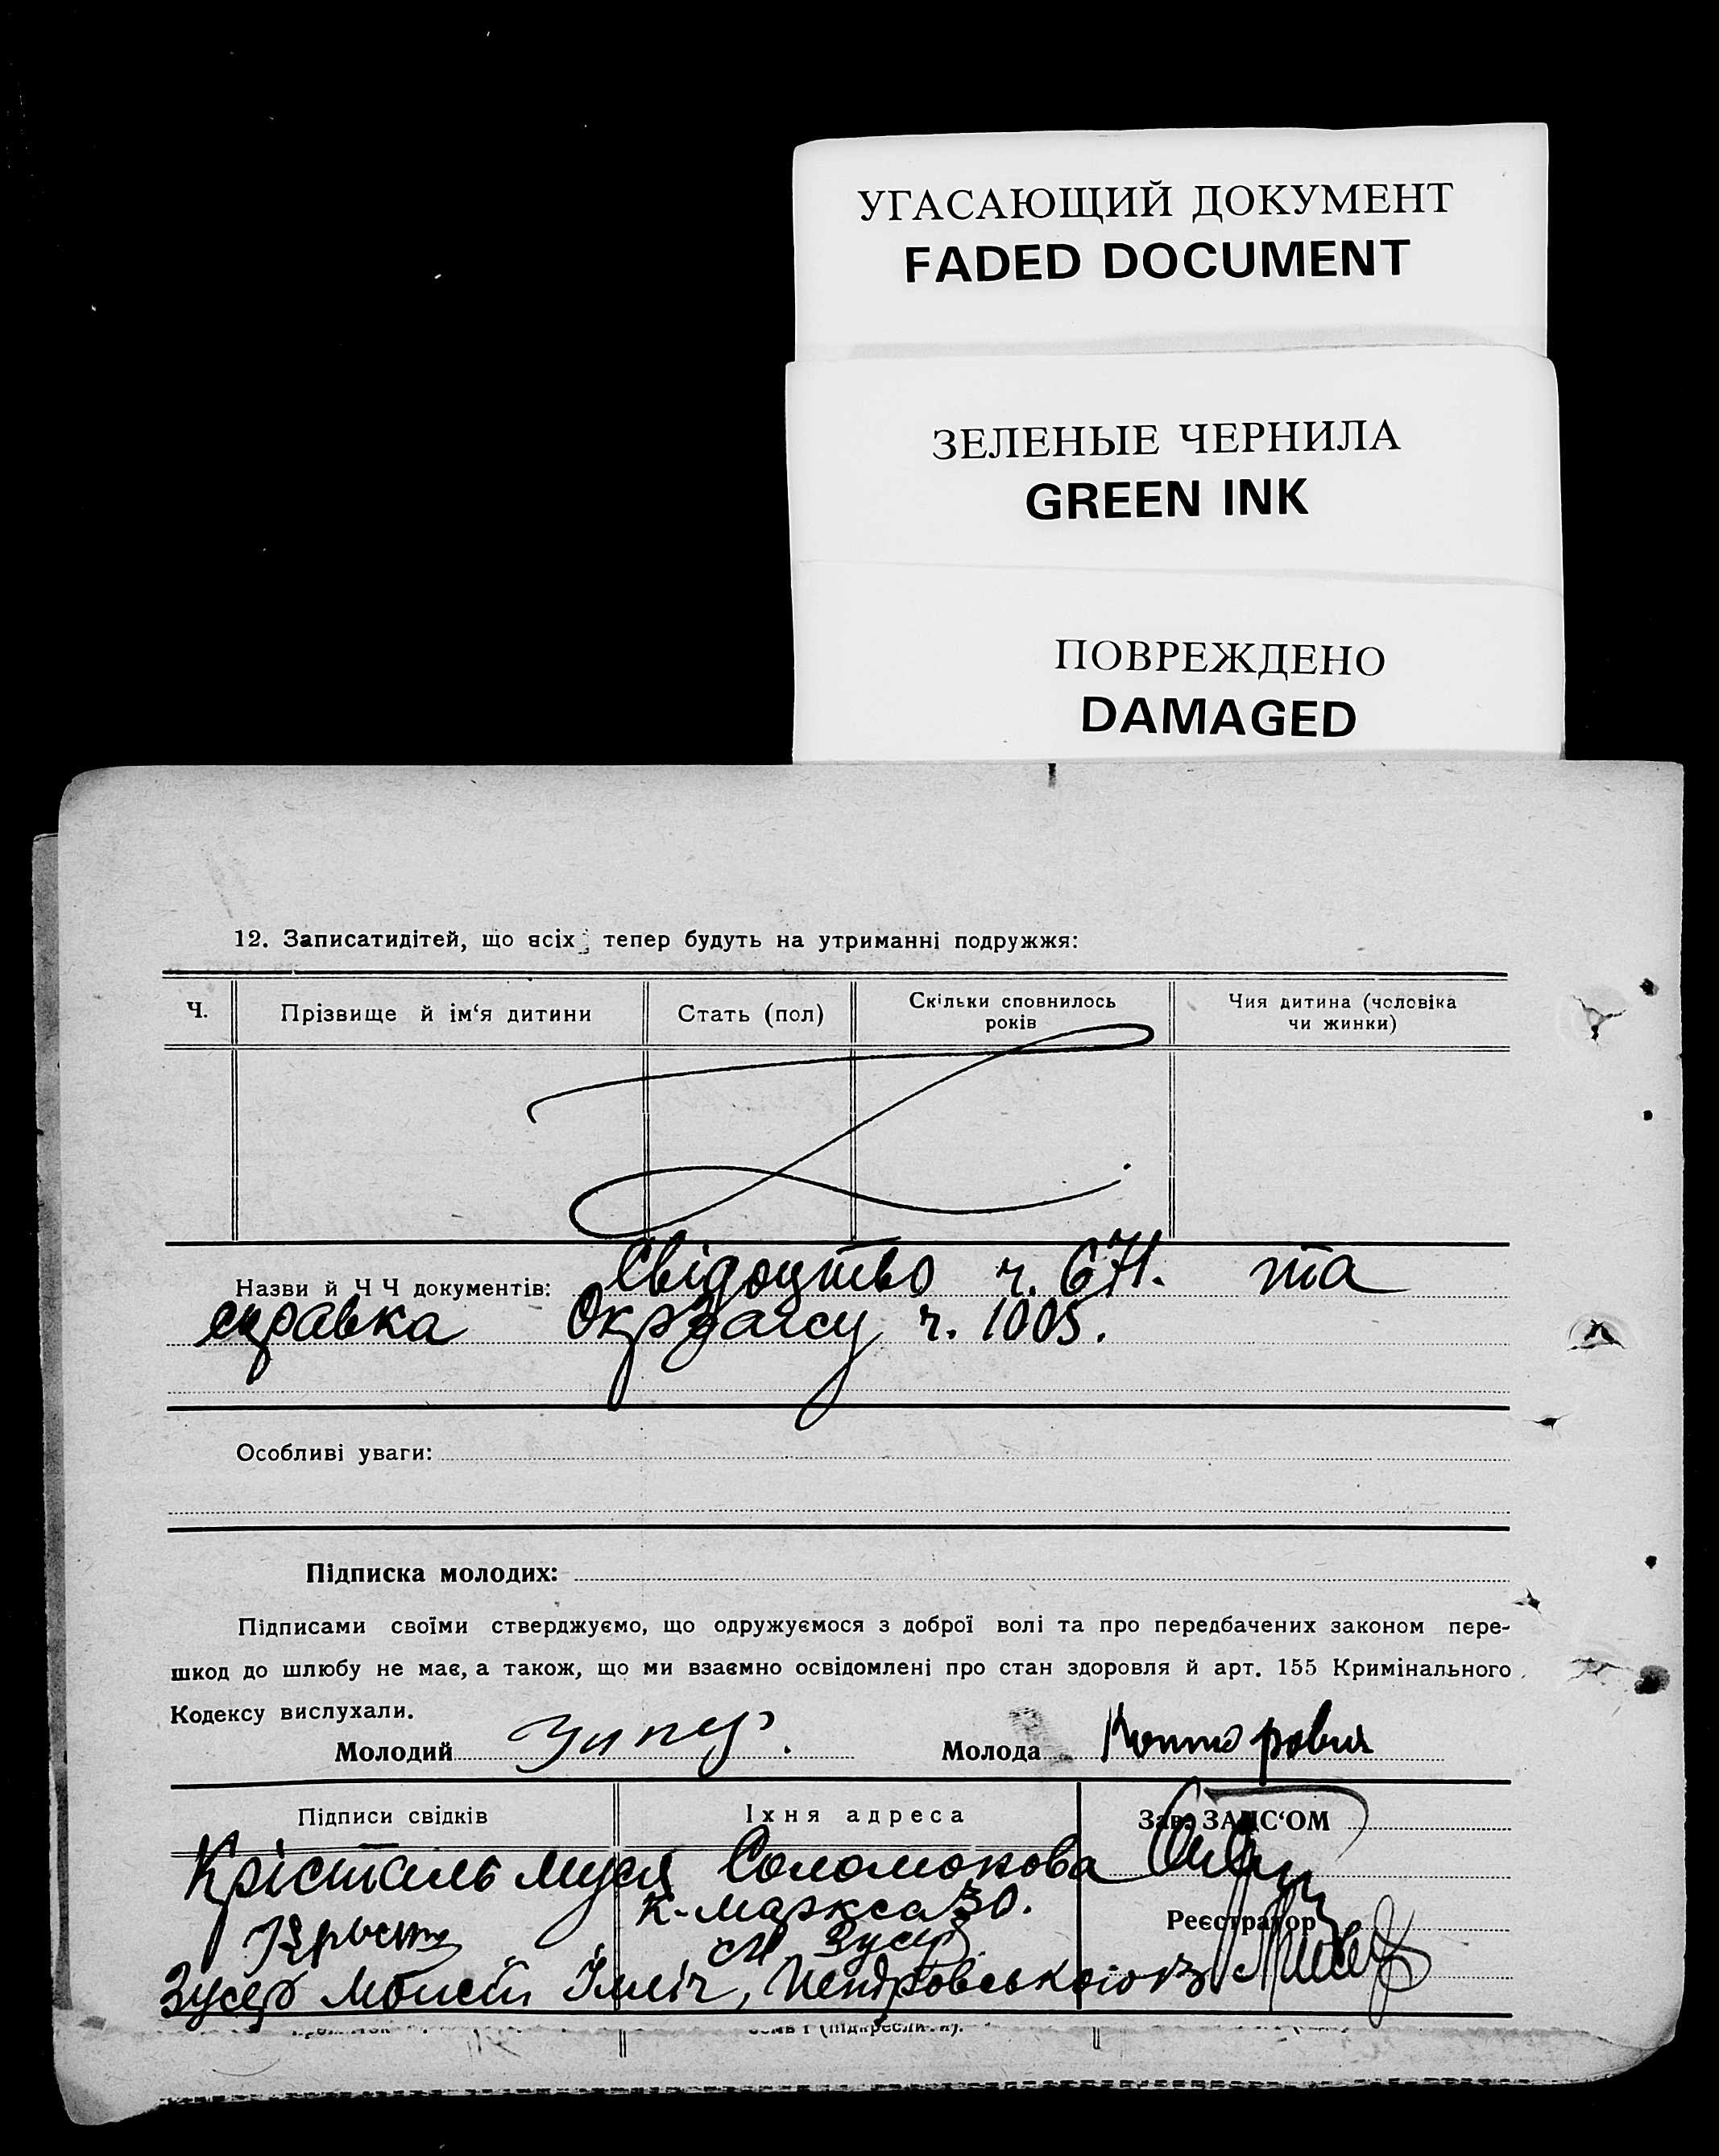 УГАСАЮЩИЙ ДОКУМЕНТ
FADED DOCUMENT
ЗЕЛЕНЫЕ ЧЕРНИЛА
GREEN INK
ПОВРЕЖДЕНО
DAMAGED
12. Записатидітей, що всіх тепер будуть на утриманні подружжя:
Ч.
Прізвище й ім‘я дитини
Стать (пол)
Скільки сповнилось
років
Чия дитина (чоловіка
чи жинки)
Назви й Ч Ч документів: Свідоцтво ч. 671. та
справка ОкрЗагсу ч. 1005.
Особливі уваги:
Підписка молодих:
Підписами своїми стверджуємо, що одружуємося з доброї волі та про передбачених законом пере-
шкод до шлюбу не має, а також, що ми взаємно освідомлені про стан здоровля й арт. 155 Кримінального
Кодексу вислухали.
Молодий
Молода
Підписи свідків
Їхня адреса
Зав. ЗАГС‘ОМ
Крісталь Муся Соломонова
К-Маркса 30.
Реєстратор
М Зусер
Зусер Ілліч,